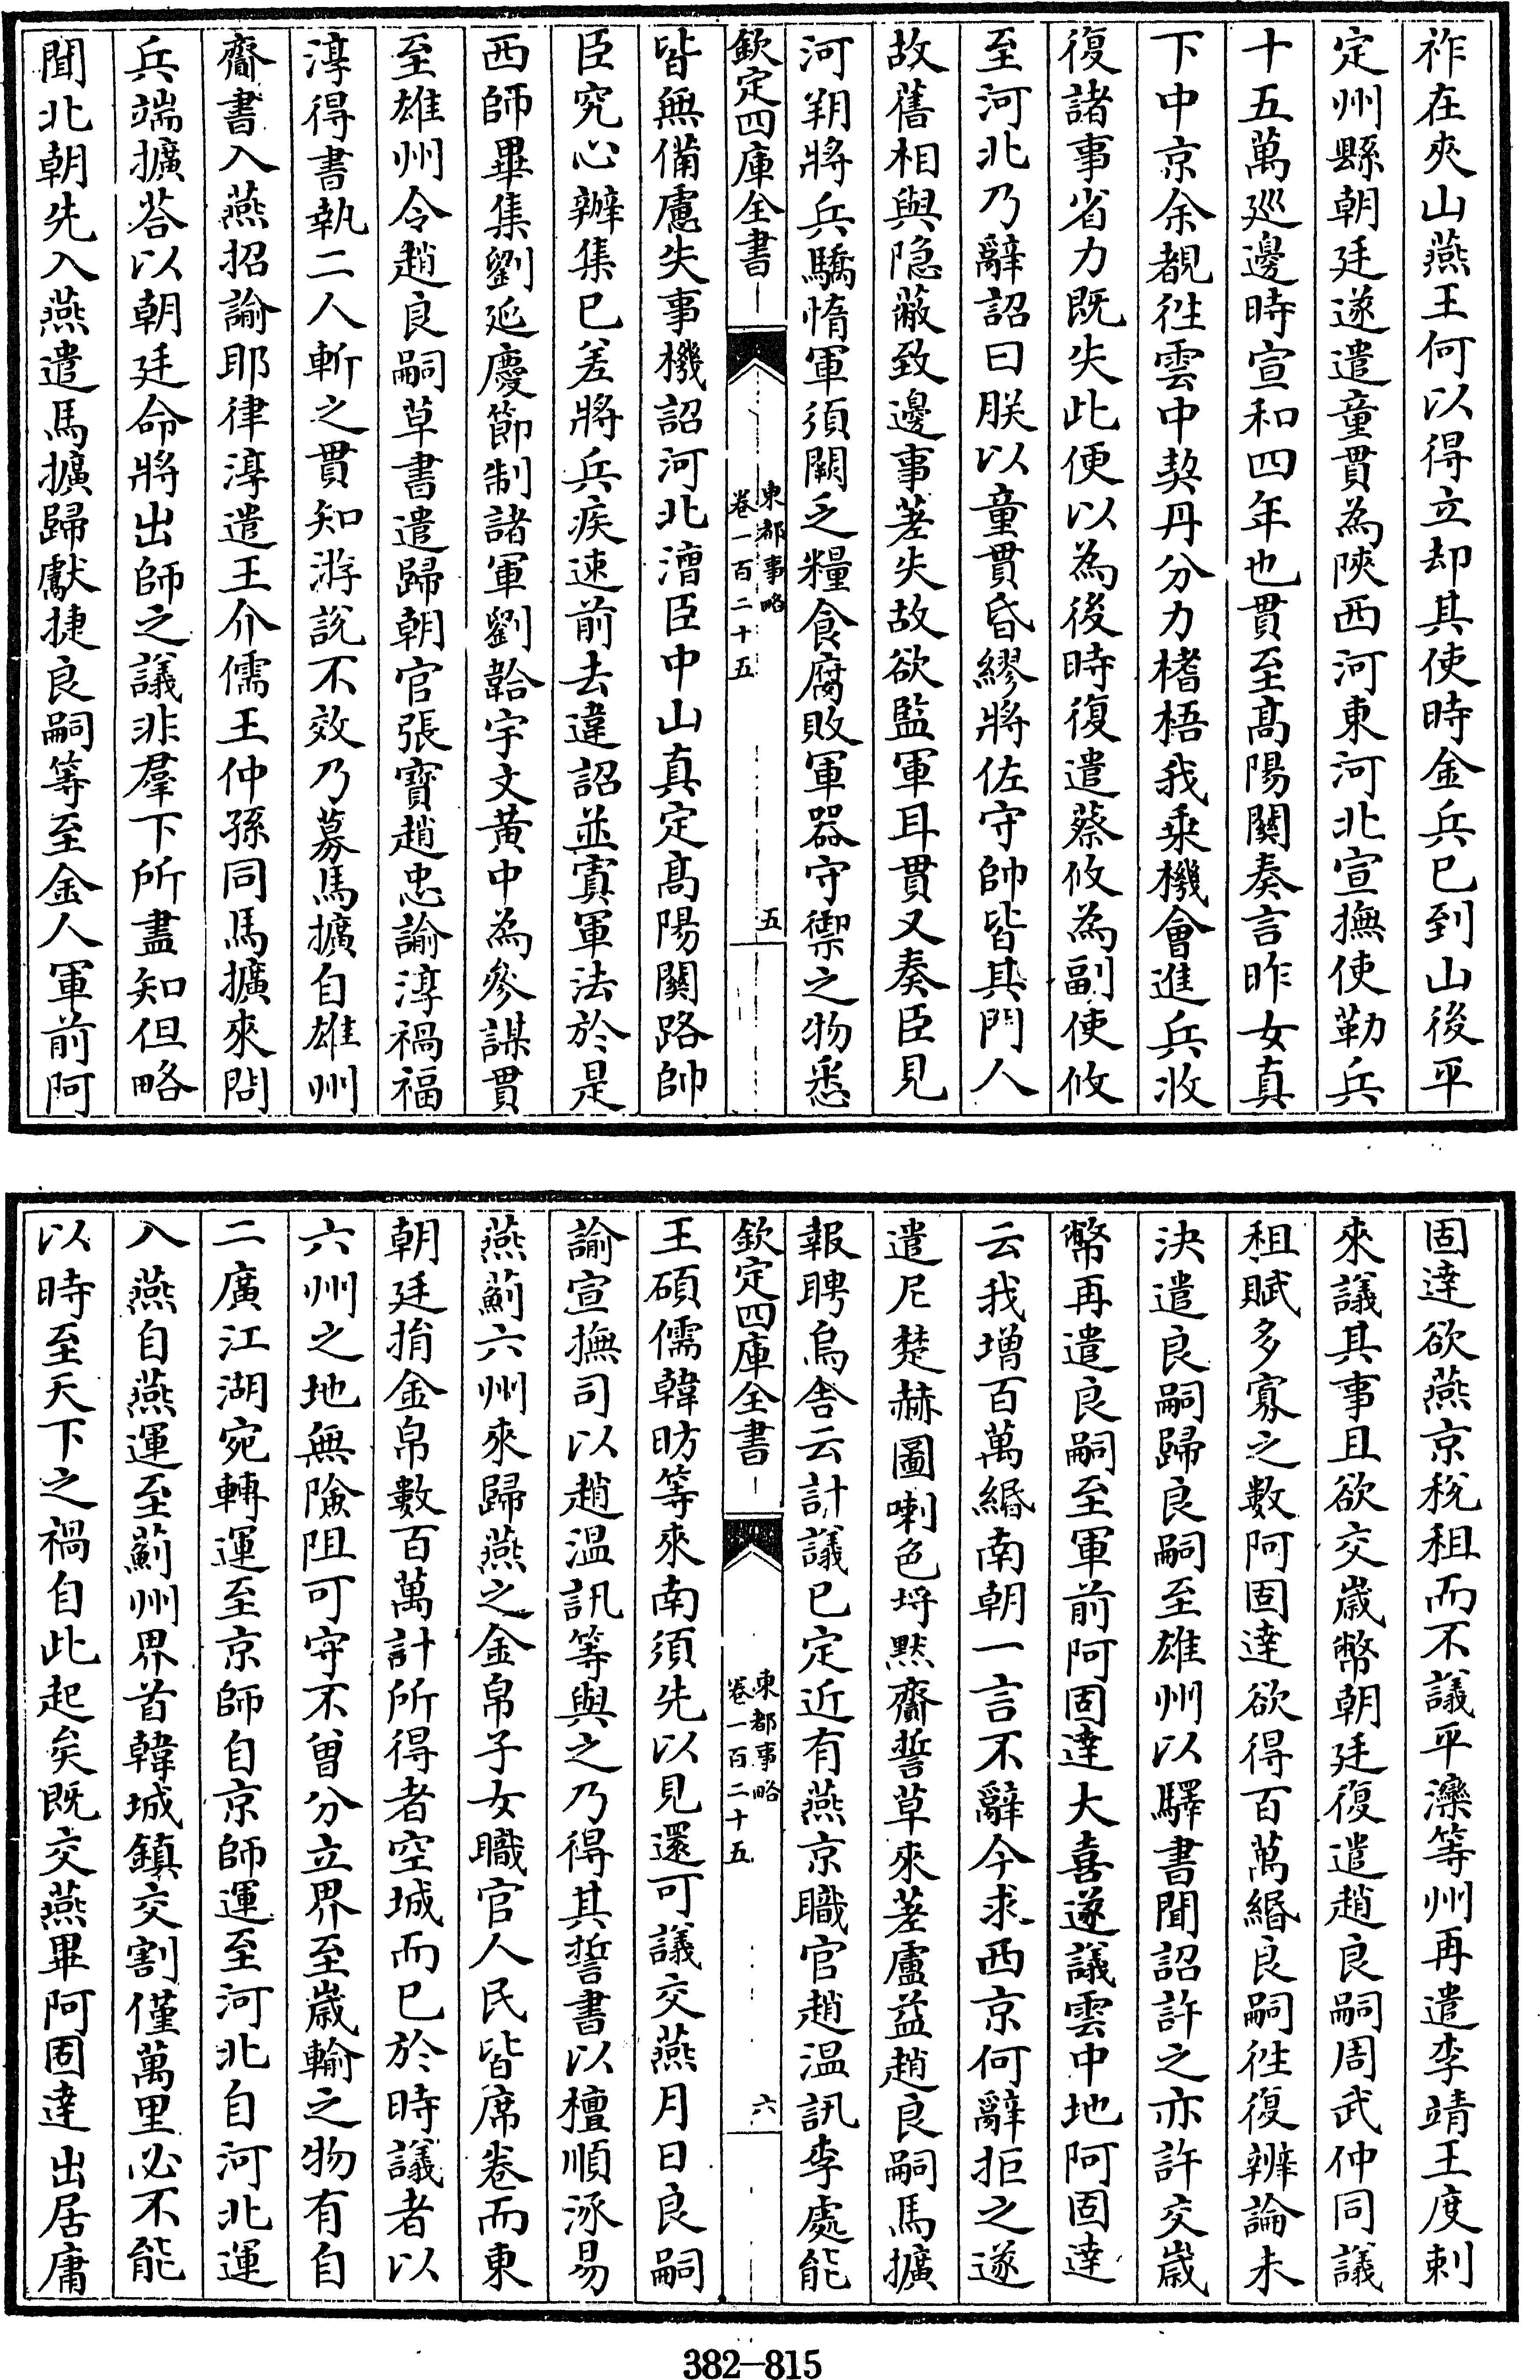 祚在夾山燕王何以得立却其使時金兵已到山後平
定州縣朝廷遂遣童貫為陜西河東河北宣撫使勒兵
十五萬廵邊時宣和四年也貫至髙陽關奏言昨女真
下中京余覩徃雲中契丹分力楮梧我乗機會進兵收
復諸事省力既失此便以為後時復遣蔡攸為副使攸
至河北乃辭詔曰朕以童貫昏繆將佐守帥皆其門人
故舊相與隐蔽致邊事差失故欲監軍耳貫又奏臣見
河朔將兵驕惰軍須闕乏糧食腐敗軍器守禦之物悉
欽定四庫全書
東都事略
卷一百二十五
五
皆無備慮失事機詔河北漕臣中山真定髙陽關路帥
臣究心辦集已差將兵疾速前去違詔並寘軍法於是
西師畢集劉延慶節制諸軍劉韐宇文黄中為參謀貫
至雄州令趙良嗣草書遣歸朝官張寳趙忠諭淳禍福
淳得書執二人斬之貫知游説不效乃募馬擴自雄州
齎書入燕招諭耶律淳遣王介儒王仲孫同馬擴來問
兵端擴荅以朝廷命將出師之議非羣下所盡知但略
聞北朝先入燕遣馬擴歸獻捷良嗣等至金人軍前阿
固逹欲燕京税租而不議平灤等州再遣李靖王度剌
來議其事且欲交歲幣朝廷復遣趙良嗣周武仲同議
租賦多寡之數阿固逹欲得百萬緡良嗣徃復辨論未
決遣良嗣歸良嗣至雄州以驛書聞詔許之亦許交歲
幣再遣良嗣至軍前阿固逹大喜遂議雲中地阿固逹
云我增百萬緡南朝一言不辭今求西京何辭拒之遂
遣尼楚赫圖喇色埒黙齎誓草來差盧益趙良嗣馬擴
報聘烏舍云計議已定近有燕京職官趙温訊李處能
欽定四庫全書
東都事略
卷一百二十五
六
王碩儒韓昉等來南須先以見還可議交燕月日良嗣
諭宣撫司以趙温訊等與之乃得其誓書以檀順涿易
燕薊六州來歸燕之金帛子女職官人民皆席卷而東
朝廷捐金帛數百萬計所得者空城而已於時議者以
六州之地無險阻可守不曽分立界至歲輸之物有自
二廣江湖宛轉運至京師自京師運至河北自河北運
入燕自燕運至薊州界首韓城鎮交割僅萬里必不能
以時至天下之禍自此起矣既交燕畢阿固逹出居庸
382-815